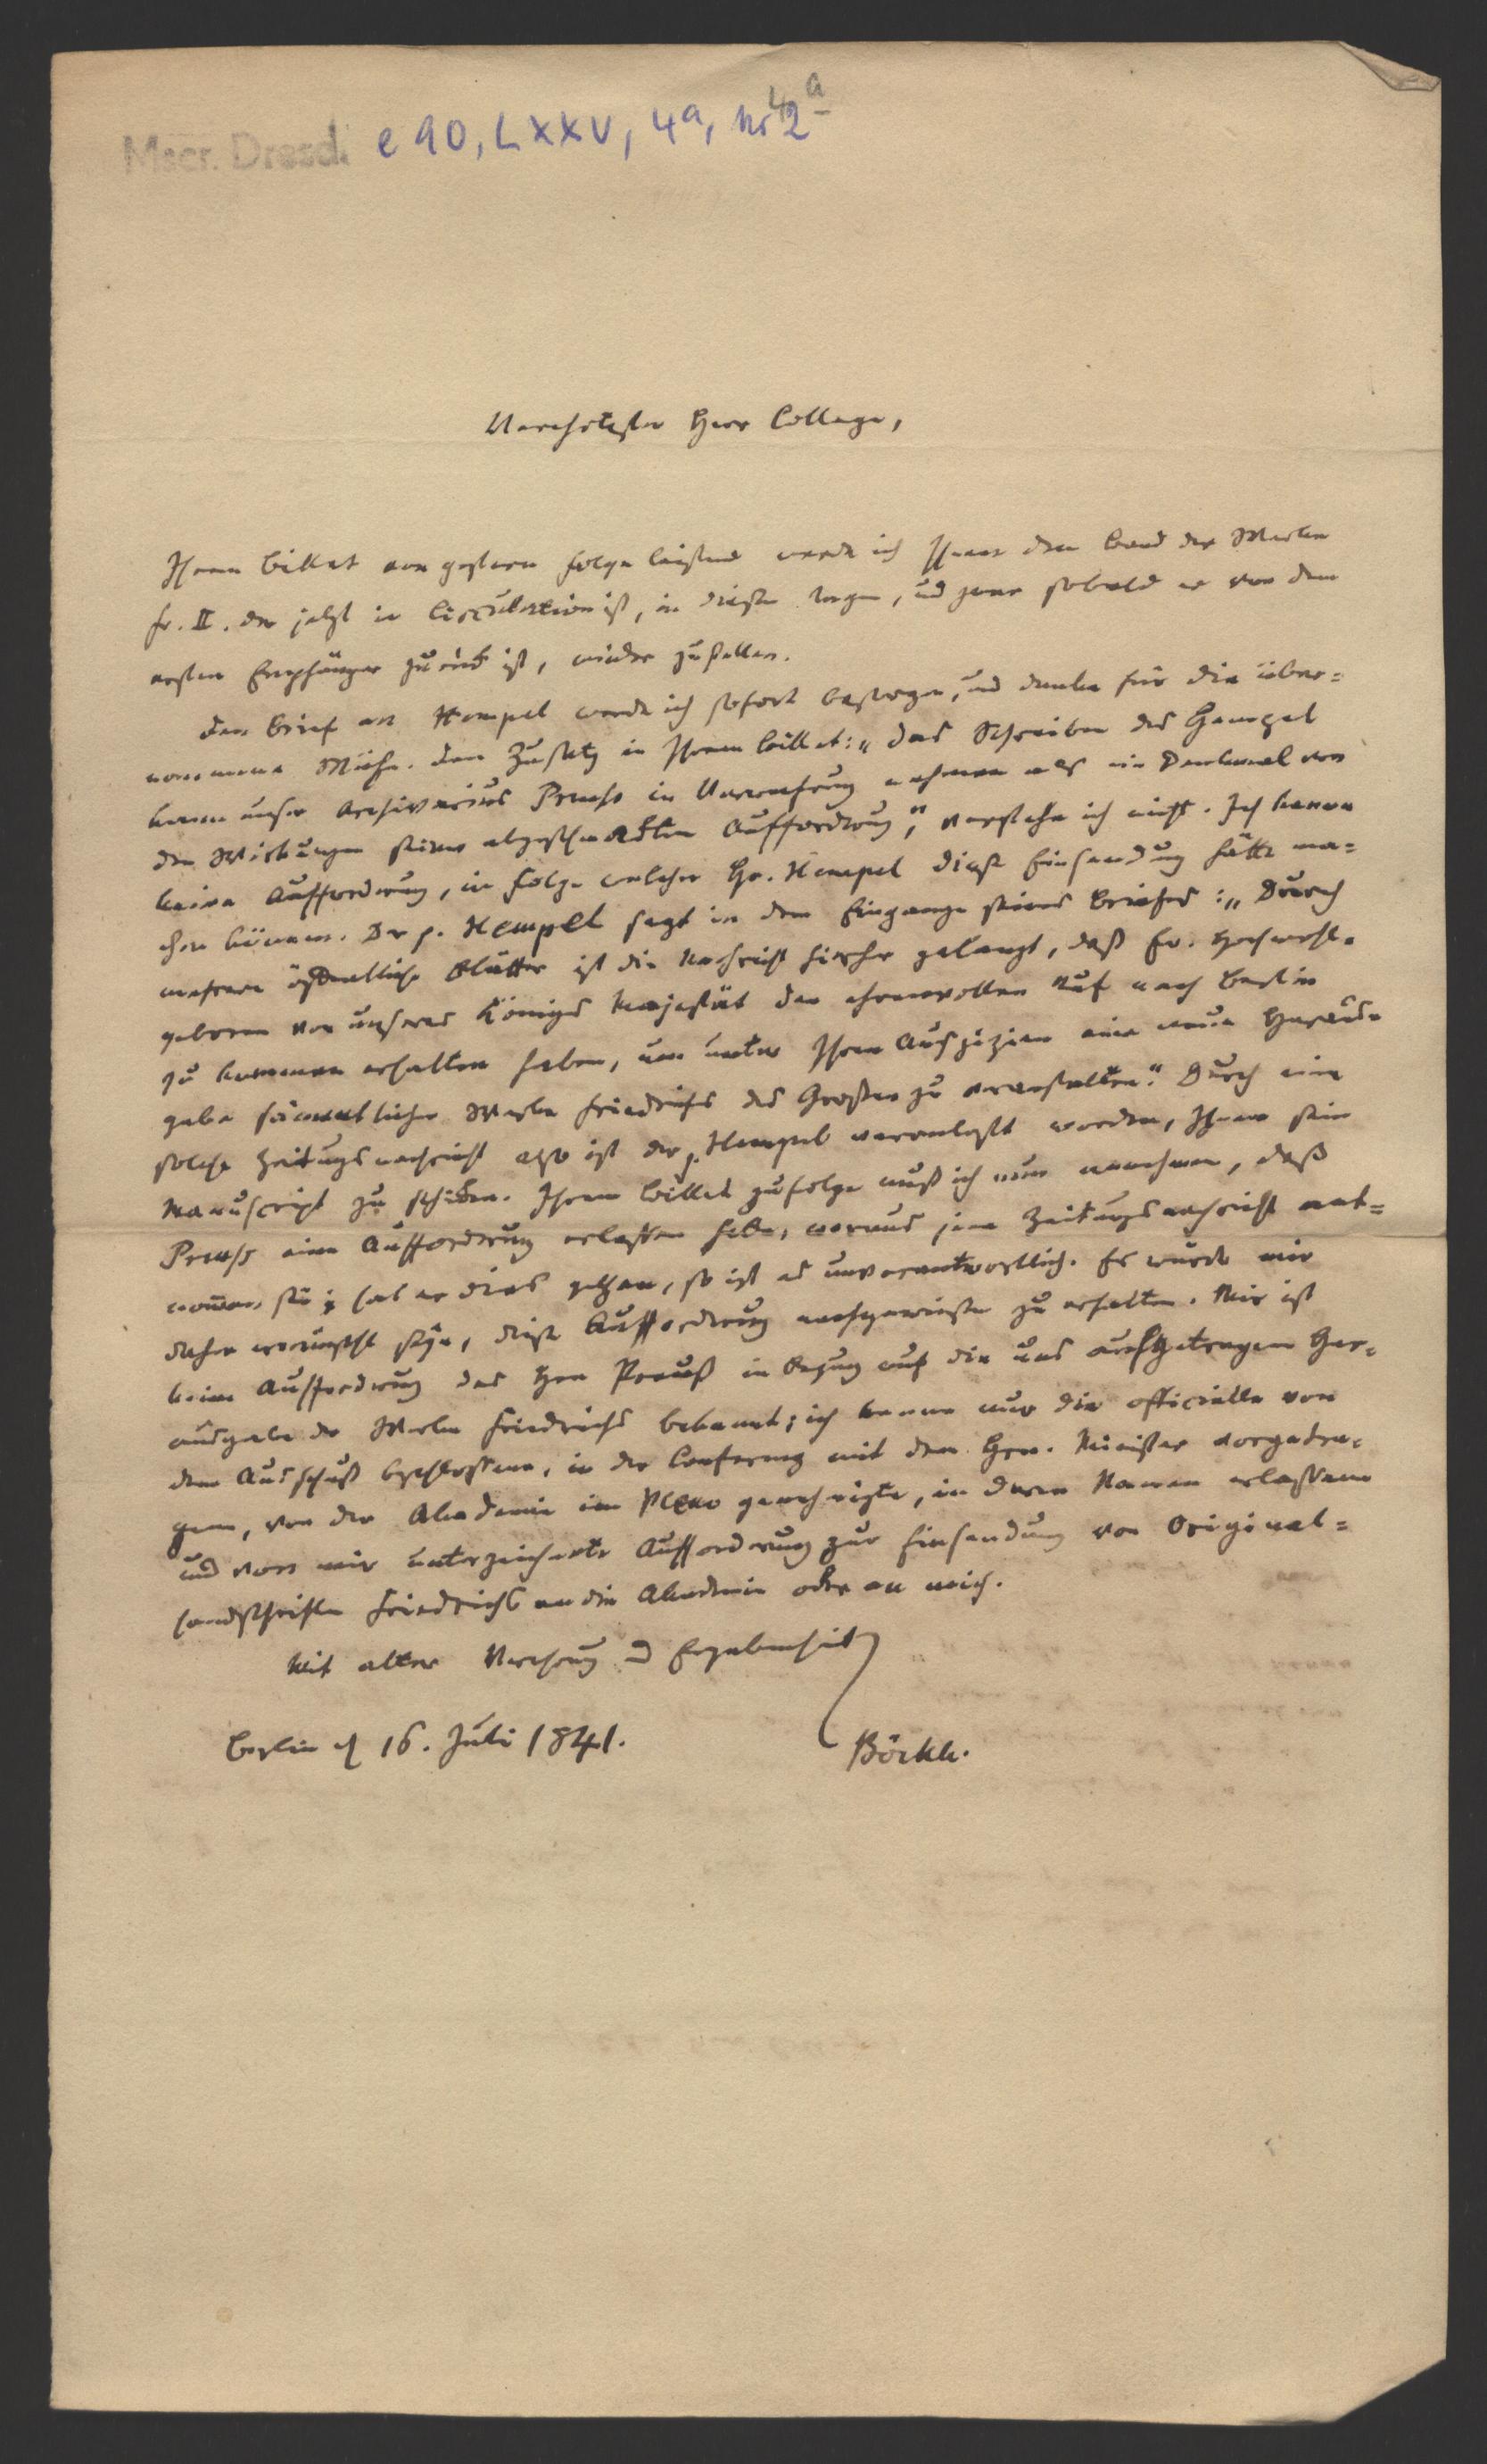 Mscr. Dresd. e 90, LXXV, 4a, Nr 42a
Verehrtester Herr College,
Ihrem Billet von gestern Folge leistend werde ich Ihnen den Band der Werke
Fr. II. der jetzt in Circulation ist, in diesen Tagen, und zwar sobald er von dem
ersten Empfänger zurück ist, wieder zustellen.
Den Brief an Hempel werde ich sofort besorgen, und danke für die über=
nommene Mühe. Den Zusatz in Ihrem Billet: „das Schreiben des Hempel
kann unser Archivarius Preuss in Verwahrung nehmen als ein Denkmal von
den Wirkungen seiner abgeschmackten Aufforderung," verstehe ich nicht. Ich kenne
keine Aufforderung, in Folge welcher Hr. Hempel diese Einsendung hätte ma=
chen können. Der p. Hempel sagt in dem Eingange seines Briefes: „Durch
mehrere öffentliche Blätter ist die Nachricht hierher gelangt, daß Ew. Hochwohl=
geboren von unseres Königs Majestät den ehrenvollen Ruf nach Berlin
zu kommen erhalten haben, um unter Ihren Auspizien eine neue Heraus=
gabe sämmtlicher Werke Friedrichs des Großen zu veranstalten." Durch eine
solche Zeitungsnachricht also ist der p. Hempel veranlaßt worden, Ihnen sein
Manuscript zu schicken. Ihrem Billet zufolge muß ich nun annehmen, daß
Preuss eine Aufforderung erlassen habe, woraus jene Zeitungsnachricht ent=
nommen sei; hat er dies gethan, so ist es unverantwortlich. Es würde mir
daher erwünscht seyn, diese Aufforderung nachgewiesen zu erhalten. Mir ist
keine Aufforderung des Hrn Preuß in Bezug auf die uns aufgetragene Her=
ausgabe der Werke Friedrichs bekannt; ich kenne nur die officielle von
dem Ausschuß beschlossene, in der Conferenz mit dem Hrn. Minister vorgetra=
gene, von der Akademie im Pleno genehmigte, in deren Namen erlassene
und von mir unterzeichnete Aufforderung zur Einsendung von Original=
handschriften Friedrichs an die Akademie oder an mich.
Mit aller Verehrung und Ergebenheit
Berlin d 16. Juli 1841.
Böckh.